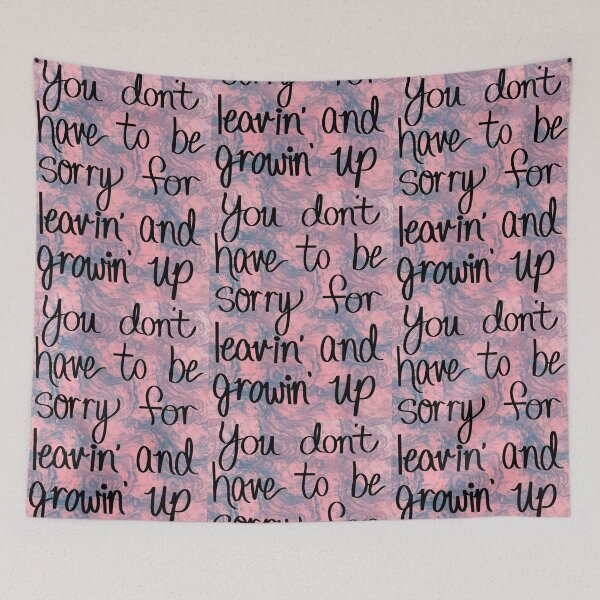 You don't
have to be
sorry for
leavin' and
growin' up
You don't
have to be
sorry for
leavin' and
growin' up
sorry for
leavin' and
growin' up
You don't
have to be
sorry for
leavin' and
growin' up
You don't
have to be
sorry for
You don't
have to be
sorry for
leavin' and
growin' up
You don't
have to be
sorry for
leavin' and
growin' up